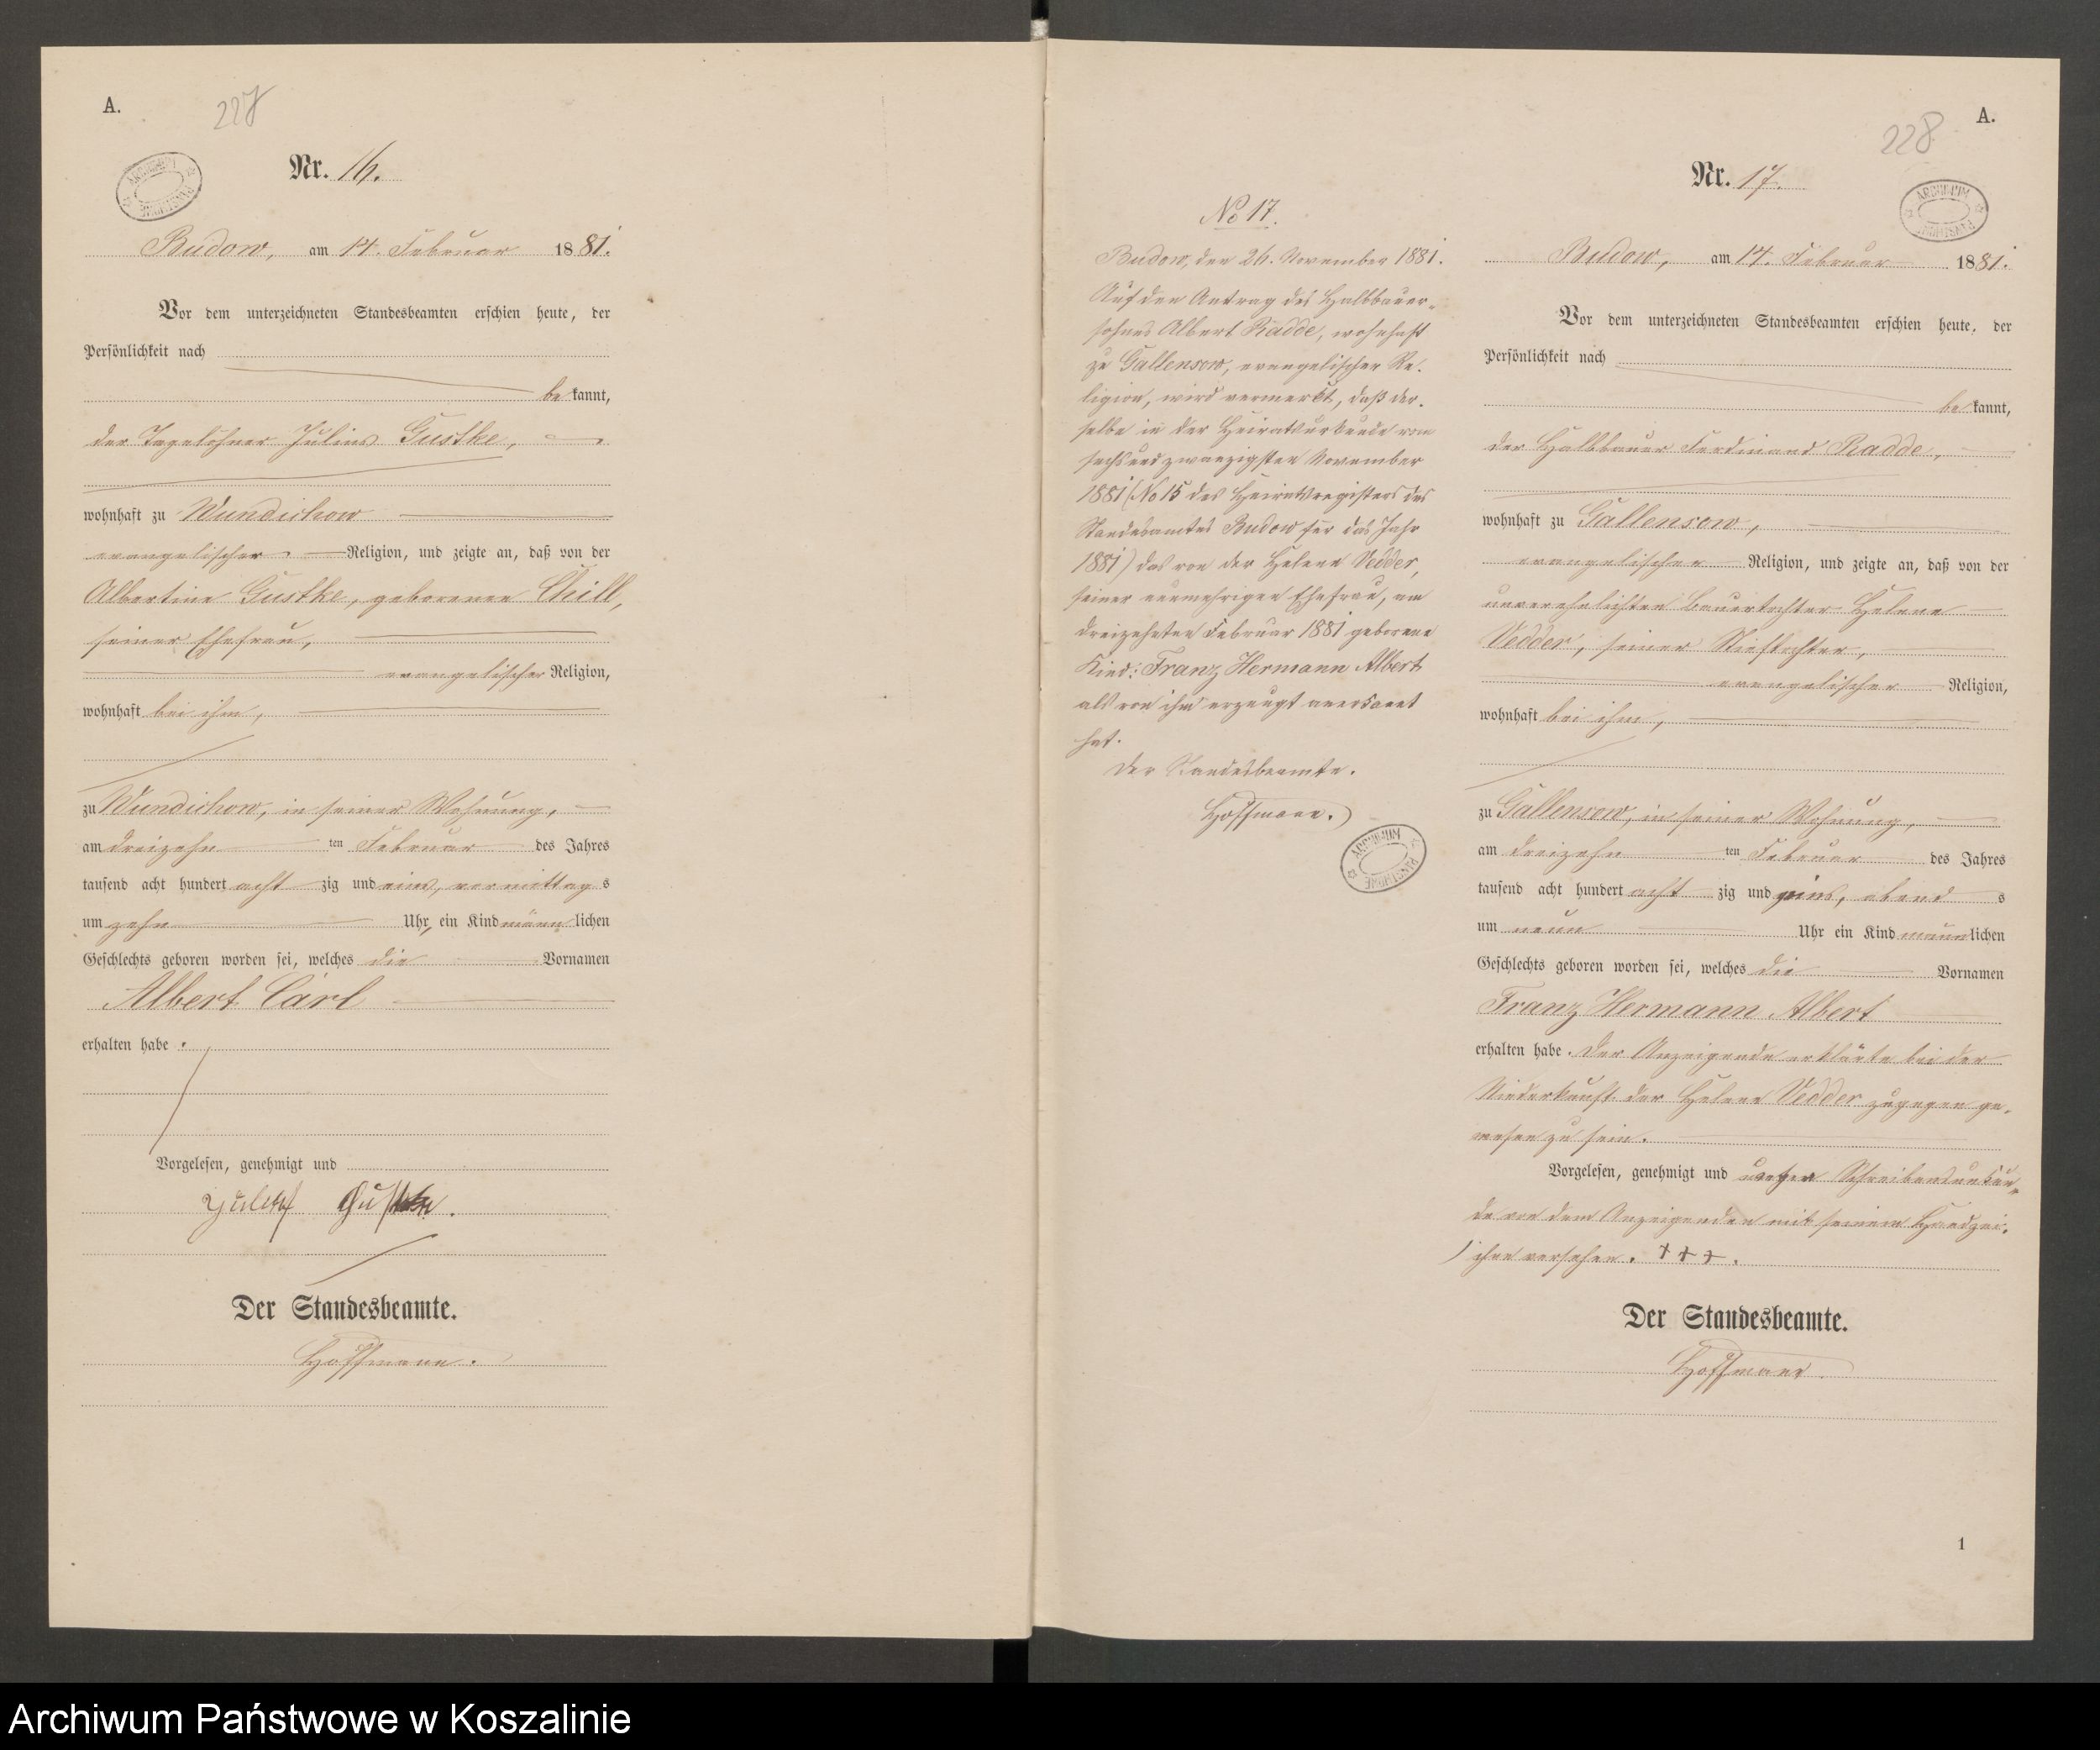 A.
227
Nr. 16.
ARCHIWUM PAŃSTWOWE
Budow, am 14. Februar 1881.
Vor dem unterzeichneten Standesbeamten erschien heute, der
Persönlichkeit nach
bekannt,
der Tagelöhner Julius Gustke,
wohnhaft zu Wundichow
evangelischer Religion, und zeigte an, daß von der
Albertine Gustke, geborenen Chill,
seiner Ehefrau,
evangelischer Religion,
wohnhaft bei ihm,
zu Wundichow, in seiner Wohnung,
am dreizehnten Februar des Jahres
tausend acht hundert achtzig und eins, vormittags
um zehn Uhr, ein Kind männlichen
Geschlechts geboren worden sei, welches die Vornamen
Albert Carl
erhalten habe.
Vorgelesen, genehmigt und
Julius Gustke.
Der Standesbeamte.
Hoffmann.
No 17.
Budow, den 26. November 1881.
Auf den Antrag des Halbbauer-
sohnes Albert Radde, wohnhaft
zu Gallensow, evangelischer Re-
ligion, wird vermerkt, daß der-
selbe in der Heiratsurkunde vom
sechsundzwanzigsten November
1881 (No 15 des Heiratsregisters des
Standesamtes Budow für das Jahr
1881) das von der Helene Vedder,
seiner nunmehrigen Ehefrau, am
dreizehnten Februar 1881 geborene
Kind: Franz Hermann Albert
als von ihm erzeugt anerkannt
hat.
Der Standesbeamte.
Hoffmann.
ARCHIWUM PAŃSTWOWE
A.
228
Nr. 17.
ARCHIWUM PAŃSTWOWE
Budow, am 14. Februar 1881.
Vor dem unterzeichneten Standesbeamten erschien heute, der
Persönlichkeit nach
bekannt,
der Halbbauer Ferdinand Radde,
wohnhaft zu Gallensow,
evangelischer Religion, und zeigte an, daß von der
unverehelichten Bauertochter Helene
Vedder, seiner Stieftochter,
evangelischer Religion,
wohnhaft bei ihm,
zu Gallensow, in seiner Wohnung,
am dreizehnten Februar des Jahres
tausend acht hundert achtzig und eins, abends
um neun Uhr ein Kind männlichen
Geschlechts geboren worden sei, welches die Vornamen
Franz Hermann Albert
erhalten habe. Der Anzeigende erklärte bei der
Niederkunft der Helene Vedder zugegen ge-
wesen zu sein.
Vorgelesen, genehmigt und wegen Schreibensunkun-
de von dem Anzeigenden mit seinem Handzei-
chen versehen. + + +.
Der Standesbeamte.
Hoffmann.
1
Archiwum Państwowe w Koszalinie